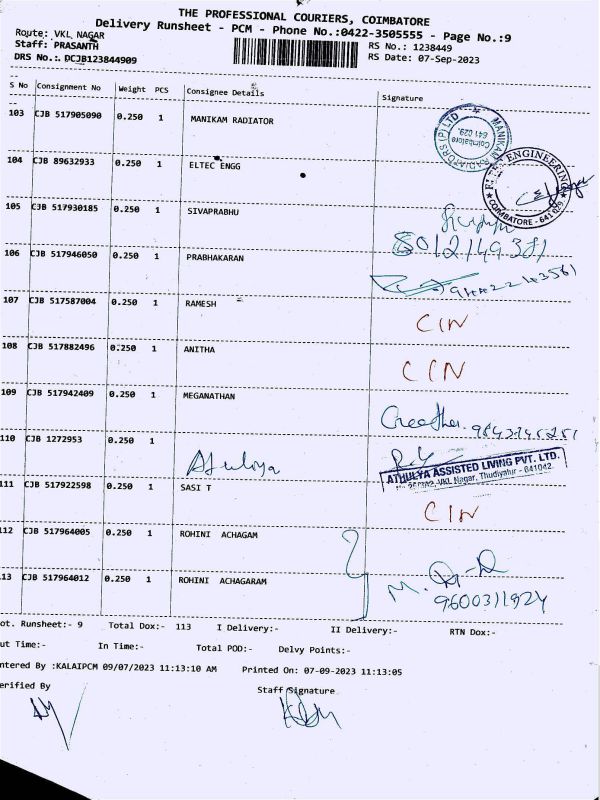 THE PROFESSIONAL COURIERS, COIMBATORE
Delivery Runsheet - PCM - Phone No.:0422-3505555 - Page No.:9
Route: VKL NAGAR
RS No.: 1238449
Staff: PRASANTH
RS Date: 07-Sep-2023
DRS No.: DCJB123844909
S No Consignment No Weight PCS Consignee Details Signature
103 CJB 517905090 0.250 1 MANIKAM RADIATOR
MANIKAM RADIATORS (P) LTD
Coimbatore
641 029.
104 CJB 89632933 0.250 1 ELTEC ENGG
ENGINEERING
COIMBATORE - 641 029
105 CJB 517930185 0.250 1 SIVAPRABHU
106 CJB 517946050 0.250 1 PRABHAKARAN
107 CJB 517587004 0.250 1 RAMESH CIN
108 CJB 517882496 0.250 1 ANITHA CIN
109 CJB 517942409 0.250 1 MEGANATHAN
110 CJB 1272953 0.250 1 Athulya
ATHULYA ASSISTED LIVING PVT. LTD.
VKL Nagar, Thudiyalur - 641042.
111 CJB 517922598 0.250 1 SASI T CIN
112 CJB 517964005 0.250 1 ROHINI ACHAGAM
13 CJB 517964012 0.250 1 ROHINI ACHAGARAM
9600311924
ot. Runsheet:- 9 Total Dox:- 113 I Delivery:- II Delivery:- RTN Dox:-
ut Time:- In Time:- Total POD:- Delvy Points:-
ntered By :KALAIPCM 09/07/2023 11:13:10 AM Printed On: 07-09-2023 11:13:05
erified By Staff Signature